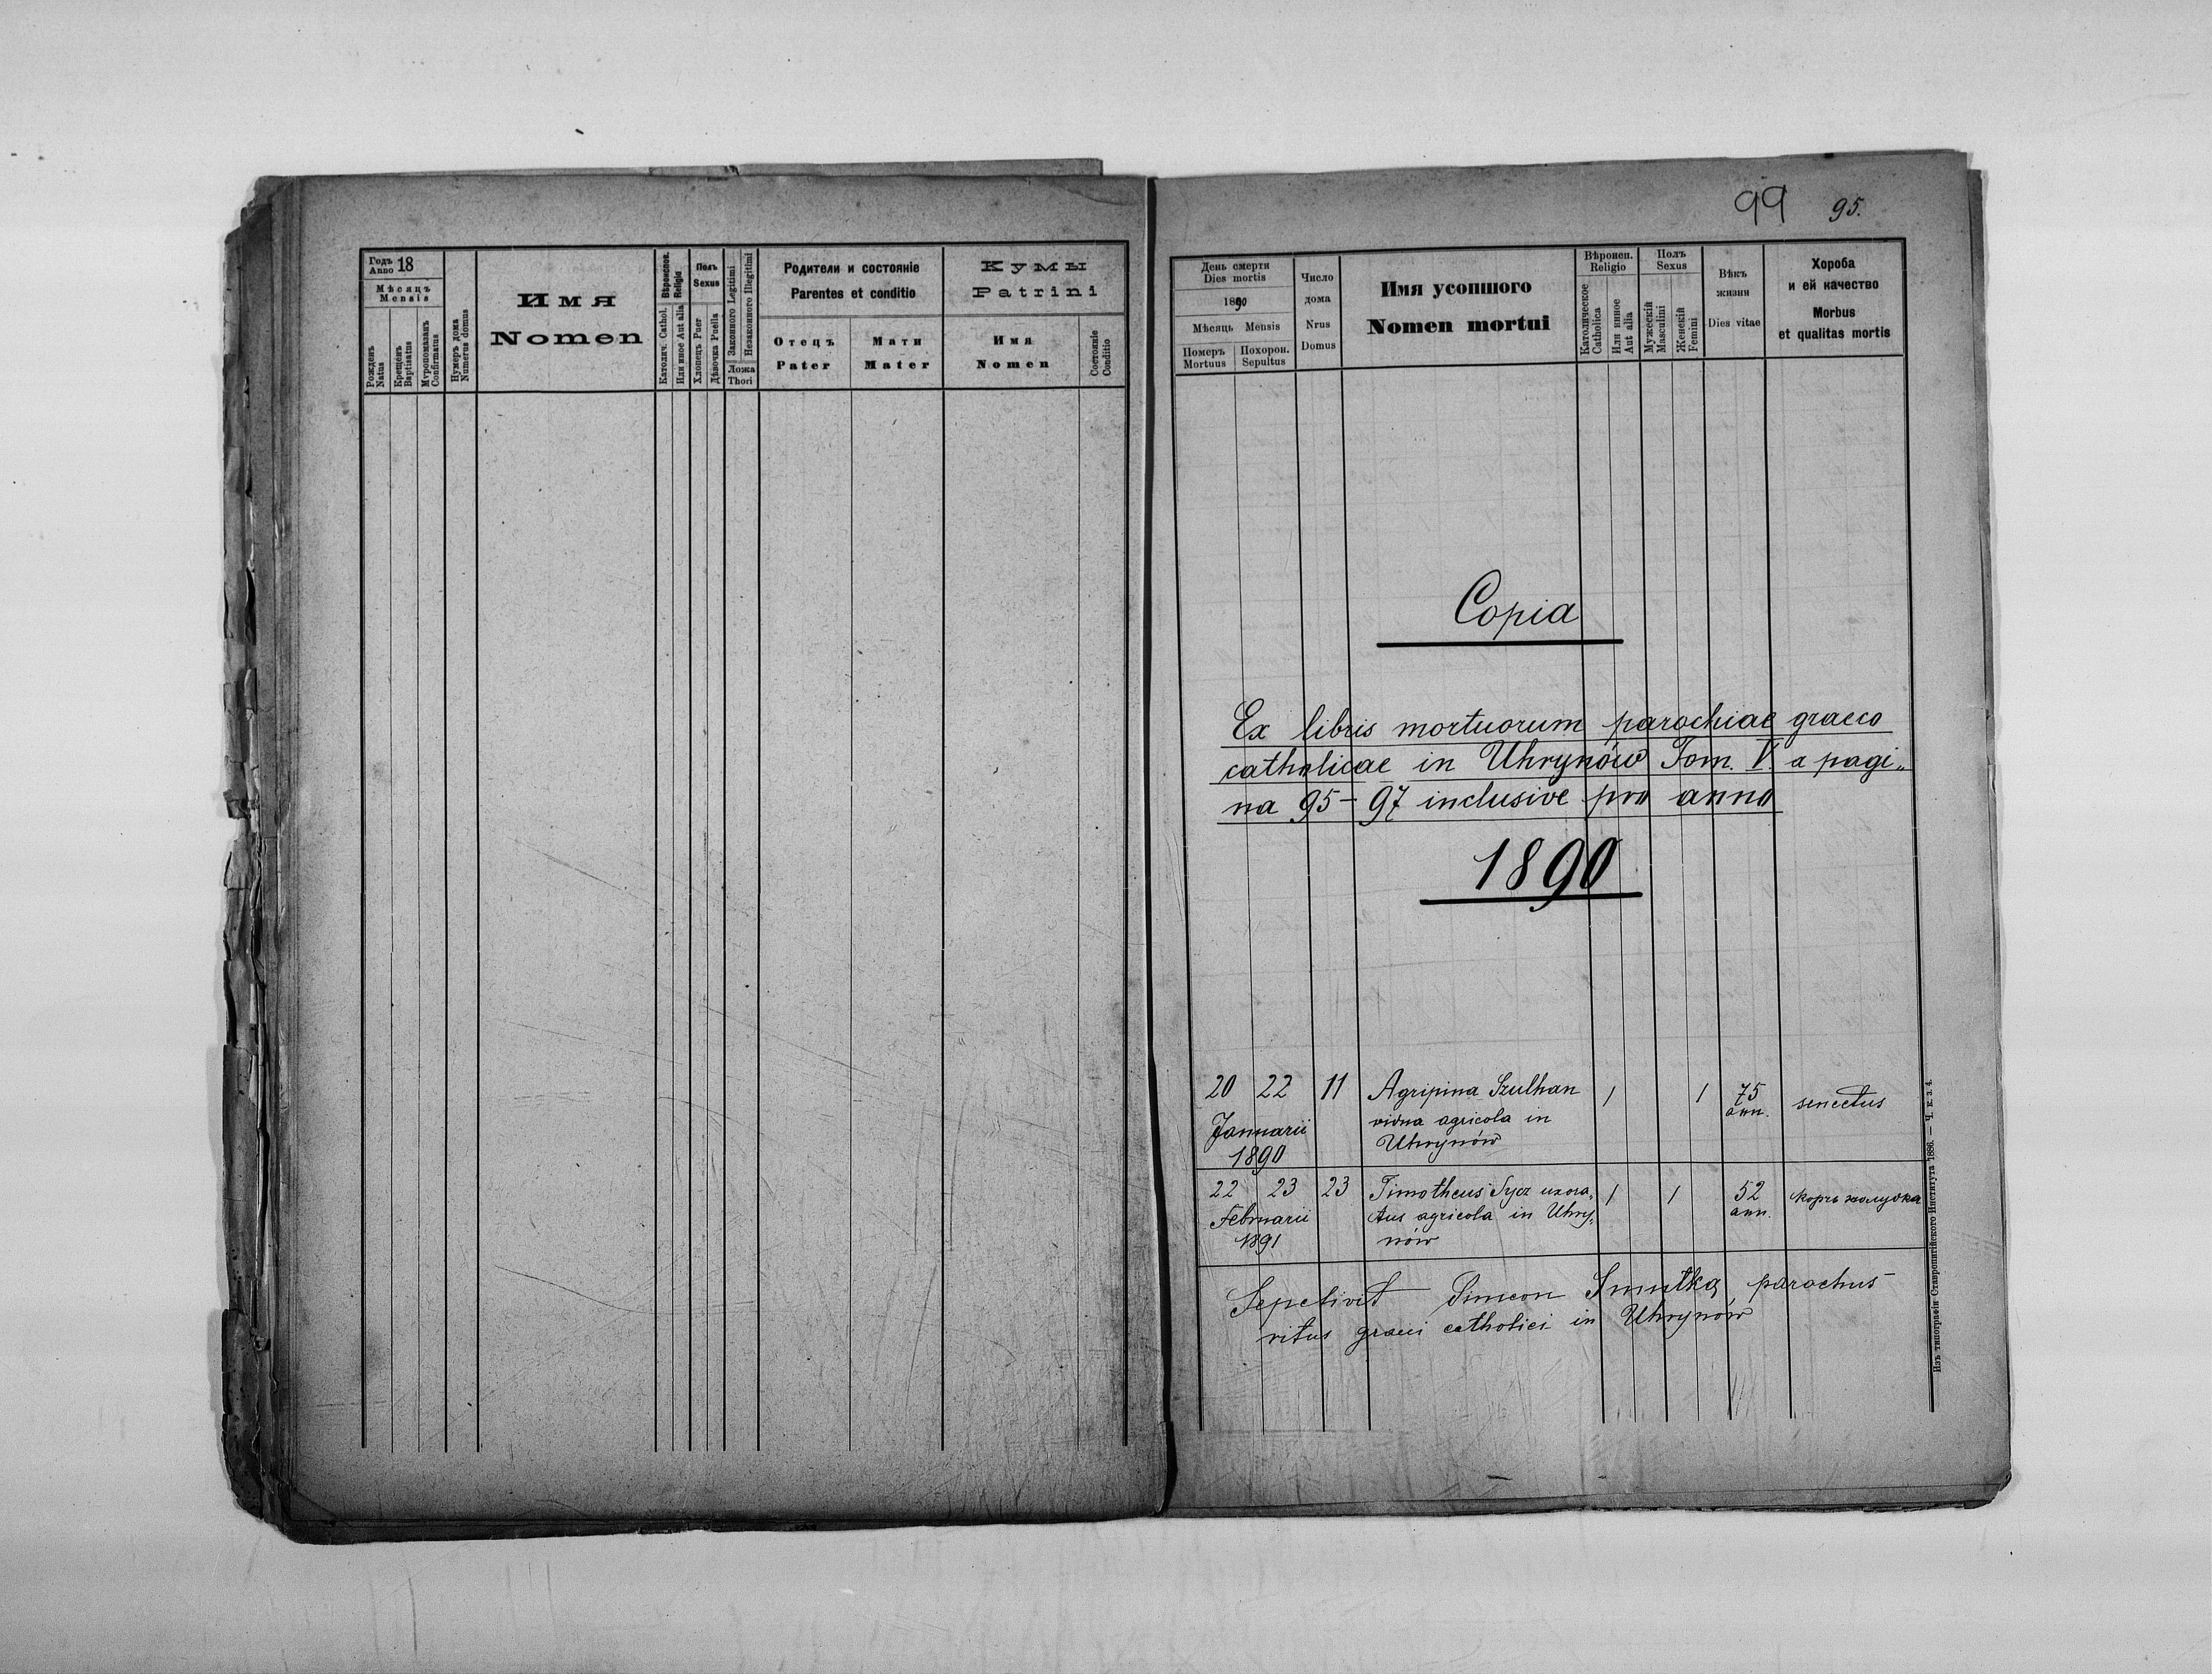 Годъ
Anno 18
Мѣсяцъ
Mensis
Рожденъ
Natus
Крещенъ
Baptisatus
Мvропомазанъ
Confirmatus
Нумеръ дома
Numerus domus
Имя
Nomen
Вѣроиспов.
Religio
Католич. Cathol.
Или иное Aut alia
Полъ
Sexus
Хлопецъ Puer
Дѣвочка Puella
Законного Legitimi
Незаконного Illegitimi
Ложа
Thori
Родители и состояніе
Parentes et conditio
Отецъ
Pater
Мати
Mater
Кумы
Patrini
Имя
Nomen
Состояніе
Conditio
99 95.
День смерти
Dies mortis
1890
Мѣсяць Mensis
Померъ
Mortuus
Похорон.
Sepultus
Число
дома
Nrus
Domus
Имя усопшого
Nomen mortui
Вѣроисп.
Religio
Католическое
Catholica
Или инное
Aut alia
Полъ
Sexus
Мужескій
Masculini
Женскій
Femini
Вѣкъ
жизни
Dies vitae
Хороба
и ей качество
Morbus
et qualitas mortis
Copia
Ex libris mortuorum parochiae graeco
catholicae in Uhrynów Tom. V. a pagi„
na 95–97 inclusive pro anno
1890
20 22 11 Agripina Szulhan / / 75 senectus
vidua agricola in ann.
Januarii Uhrynów
1890
22 23 23 Timotheus Sycz uxora„ / / 52 корчь жолудка
Februarii tus agricola in Uhry„ ann.
1891 nów
Sepelivit Simeon Smulka parochus
ritus graeci catholici in Uhrynów
Изъ типографіи Ставропигійского Института 1886. — Ч. в. з. 4.